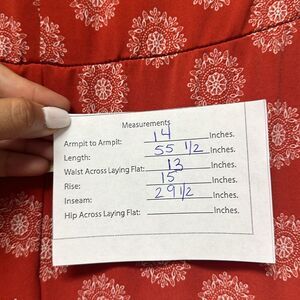 Measurements
Armpit to Armpit: 14 Inches.
Length: 55 1/2 Inches.
Waist Across Laying Flat: 13 Inches.
Rise: 15 Inches.
Inseam: 29 1/2 Inches.
Hip Across Laying Flat: Inches.